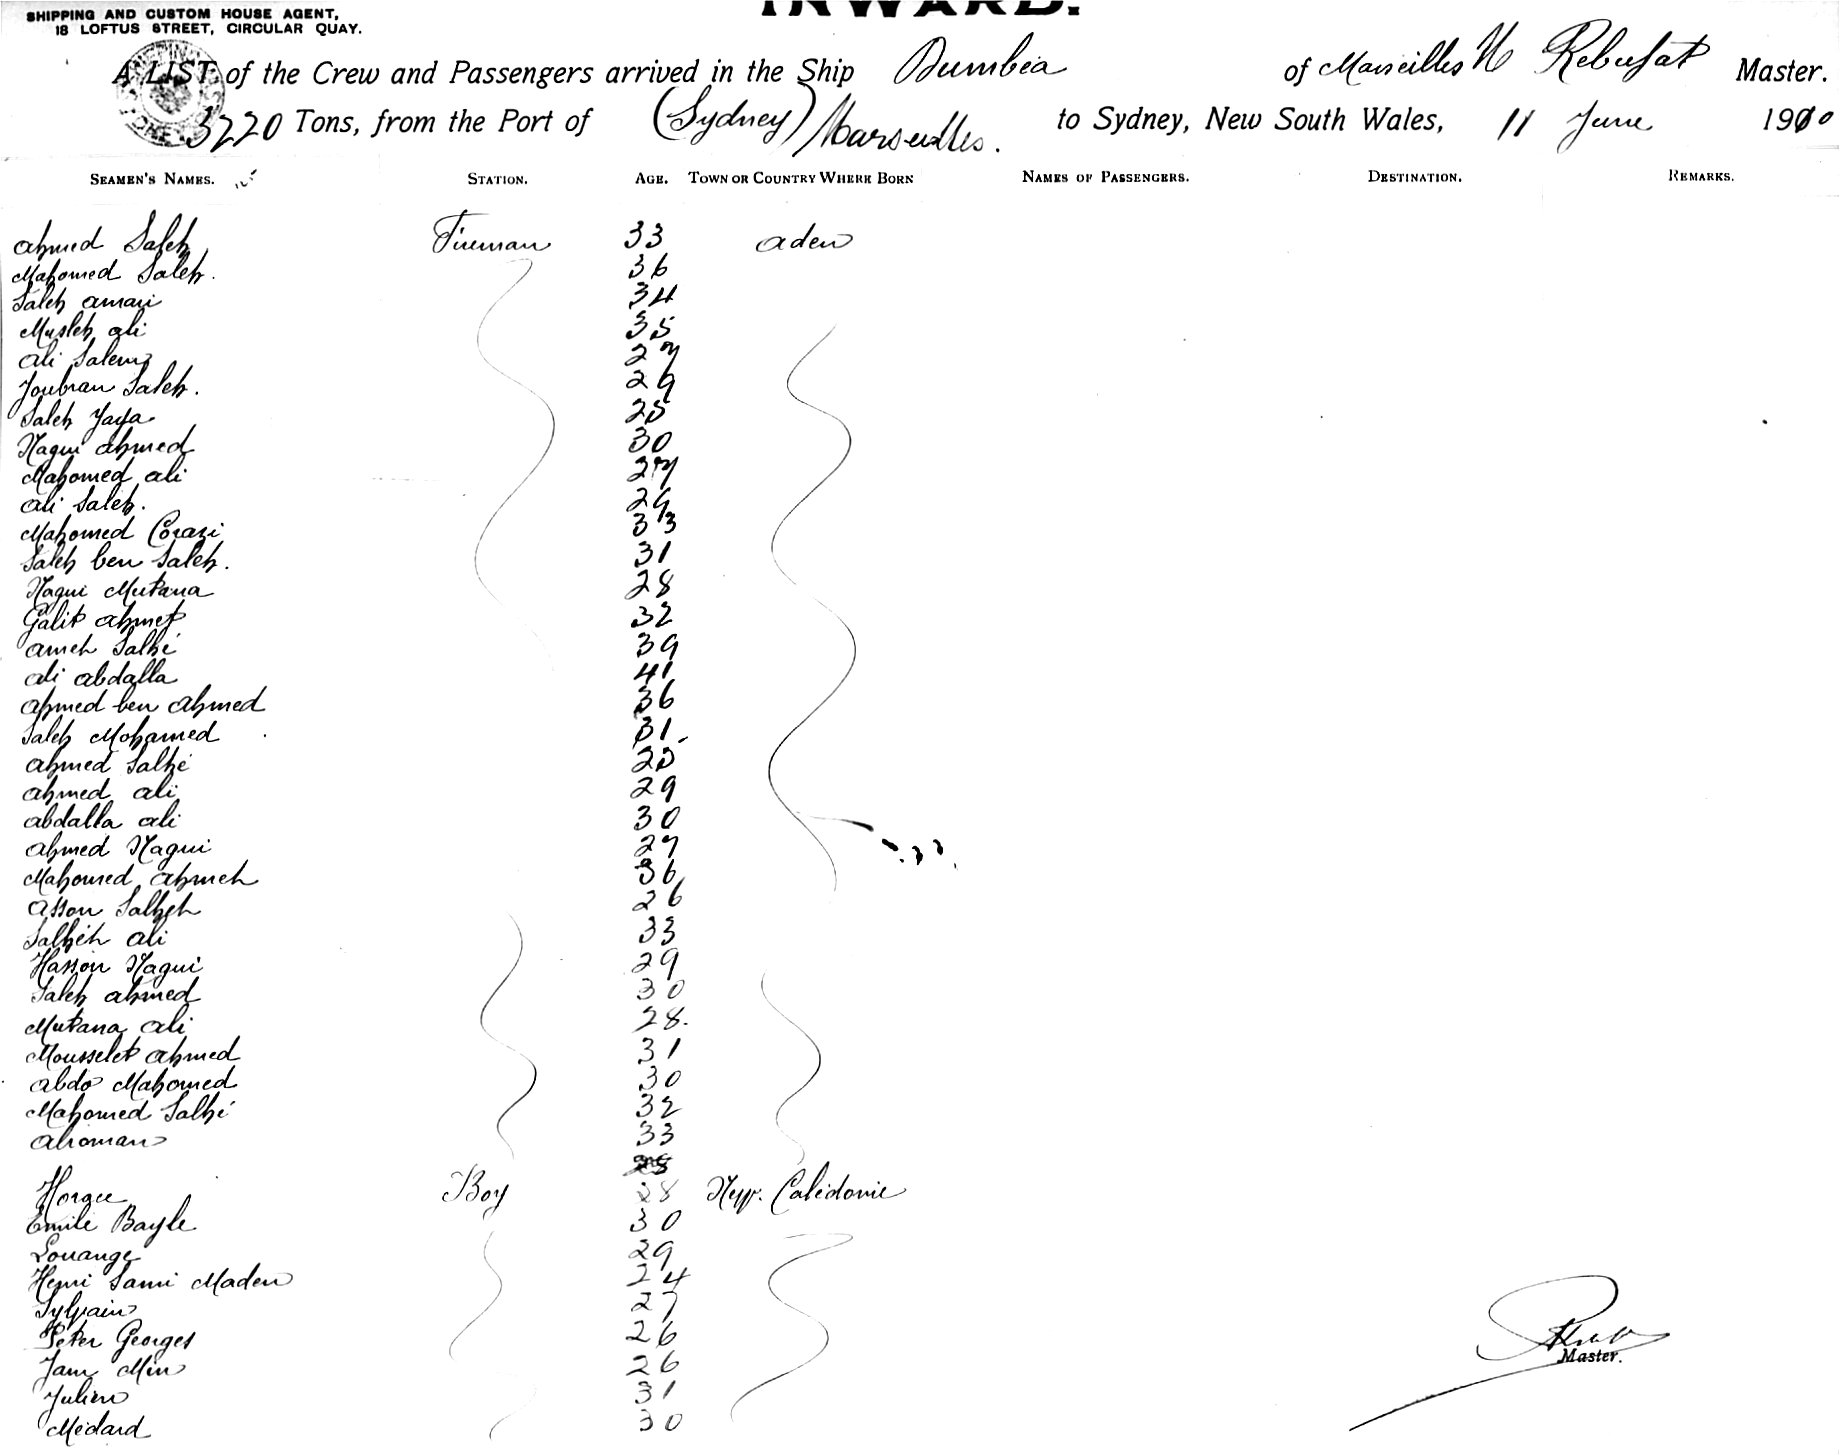 INWARD.
SHIPPING AND CUSTOM HOUSE AGENT,
18 LOFTUS STREET, CIRCULAR QUAY.
A LIST of the Crew and Passengers arrived in the Ship Dumbéa of Marseilles Rebufat Master.
3220 Tons, from the Port of (Sydney) Marseilles. to Sydney, New South Wales, 11 June 1910
SEAMEN'S NAMES. STATION. AGE. TOWN OR COUNTRY WHERE BORN NAMES OF PASSENGERS. DESTINATION. REMARKS.
ahmed Saleh Fireman 33 aden
Mahomed Saleh. 36
Saleh amari 34
Musleh ali 35
ali Salem 27
Joubran Saleh. 29
Saleh Yaya 25
Nagui ahmed 30
Mahomed ali 27
ali Saleh. 29
Mahomed Corazi 33
Saleh ben Saleh. 31
Nagui Mutana 28
Galit ahmet 32
ameh Salhé 39
ali abdalla 41
ahmed ben ahmed 36
Saleh Mohamed 31
ahmed Salhé 25
ahmed ali 29
abdalla ali 30
ahmed Nagui 27
Mahomed ahmeh 36
asson Salheh 26
Salheh ali 33
Hasson Nagui 29
Saleh ahmed 30
Mutana ali 28.
Mousselet ahmed 31
abdo Mahomed 30
Mahomed Salhé 32
alroman 33
Horace Boy 28 Nlle. Calédonie
Emile Bayle 30
Louange 29
Henri Sami Maden 24
Sylvain 27
Peter Georges 26
Jam Min 26
Julien 31
Médard 30
Master.